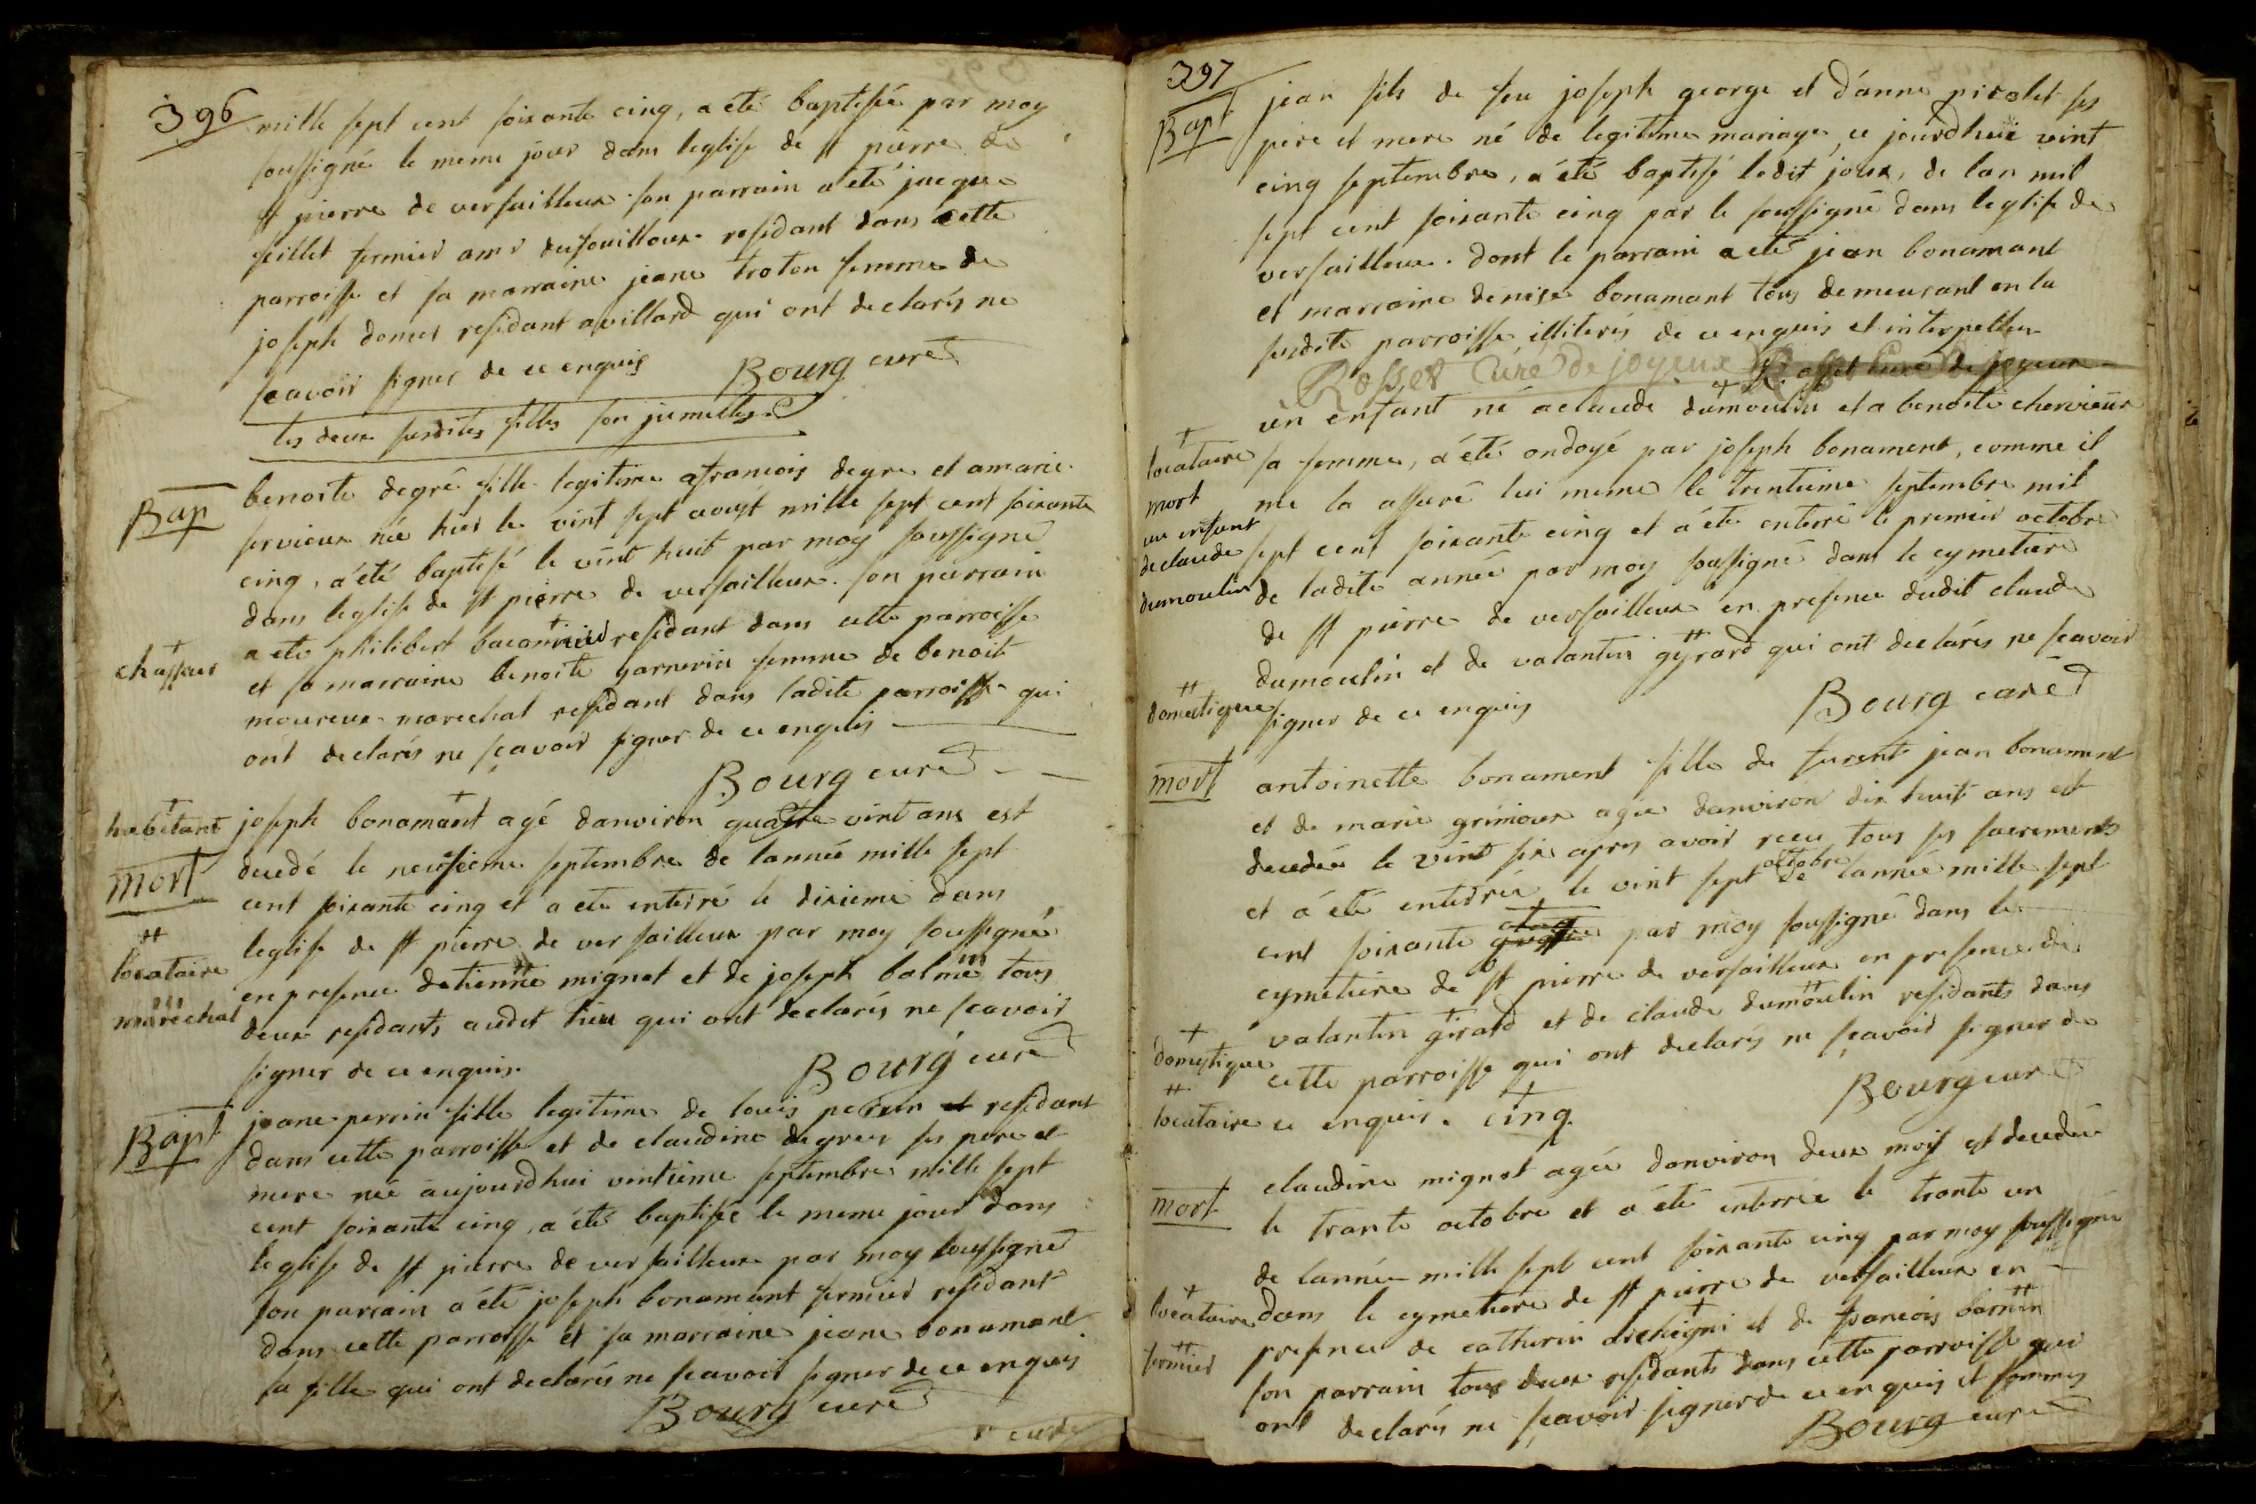 396
mille sept cent soixante cinq, a été baptisée par moy
soussigné le meme jour dans leglise de st pierre de
st pierre de versailleux son parrain a eté jacque
feillet fermier resident dans cette
parroisse et sa marraine jeane troton femme de
joseph domer residant a villard qui ont declarés ne
scavoir signer de ce enquis Bourg curé
les deux susdites filles son jumelles
Bap
benoite degré fille legitime a francois degre et a marie
servieux née hier le vint sept aoust mille sept cent soixante
cinq, a été baptisé le vint huit par moy soussigné
dans leglise de st pierre de versailleux. son parrain
a eté philibert residant dans cette parroisse
+ chasseur
et sa marraine benoite garnerin femme de benoit
moureux marechal residant dans ladite parroisse qui
ont declarés ne scavoir signer de ce enquis
Bourg curé
+ habitant
joseph bonamant agé danviron quatre vint ans est
mort
decedé le neufieme septembre de lannée mille sept
cent soixante cinq et a ete enterré le dixieme dans
leglise de st pierre de versailleux par moy soussigné
++ locataire
en presence detienne mignot et de joseph balme tous
+++ marechal
deux residants audit lieu qui ont declarés ne scavoir
signer de ce enquis.
Bourg curé
Bapt
jeane perrin fille legitime de louis perrin et residant
dans cette parroisse et de claudine degrer ses pere et
mere née aujourdhui vintieme septembre mille sept
cent soixante cinq, a été baptisée le meme jour dans
leglise de st pierre de versailleux par moy soussigné
son parrain a été joseph bonamant fermier residant
dans cette parroisse et sa marraine jeane bonamant
sa fille qui ont declarés ne scavoir signer de ce enquis
Bourg curé
397
Bapt
jean fils de feu joseph george et d'anne picolet ses
pere et mere né de legitime mariage, ce jourdhuï vint
cinq septembre, a été baptisé ledit jour, de lan mil
sept cent soixante cinq par le soussigné dans leglise de
versailleux. dont le parrain a eté jean bonamant
et marraine denise bonamant tous demeurant en la
susdite parroisse illiterés de ce enquis et interpellés
Rosset Curé de joyeux Rosset Curé de joyeux
un enfant né a claude dumoulin et a benoite chervieux
+ locataire
sa femme, a été ondoyé par joseph bonament, comme il
mort
me la assuré lui meme le trentieme septembre mil
un enfant
de claude
sept cent soixante cinq et a été enterré le premier octobre
dumoulin
de ladite année par moy soussigné dans le cymetiere
de st pierre de versailleux en presence dudit claude
dumoulin et de valantin gyrard qui ont declarés ne scavoir
++ domestique
signer de ce enquis
Bourg curé
mort
antoinette bonament fille de jean bonament
et de marie grimoux agée danviron dix huit ans est
decedée le vint six apres avoir receu tous ses sacrements
et a été enterrée le vint sept octobre de lannée mille sept
cent soixante quatre par moy soussigné dans le
cymetiere de st pierre de versailleux en presence de
valantin girard et de claude dumoulin residants dans
+ domestique
cette parroisse qui ont declarés ne scavoir signer de
++ locataire
ce enquis. + cinq
Bourg curé
claudine mignot agée danviron deux mois est decedée
mort
le trante octobre et a été enterrée le trante un
de lannée mille sept cent soixante cinq par moy soussigné
+ locataire
dans le cymetiere de st pierre de versailleux en
presence de catherin et de francois
++ fermier
son parrain tous deux residants dans cette parroisse qui
ont declarés ne scavoir signer de ce enquis et sommés
Bourg curé